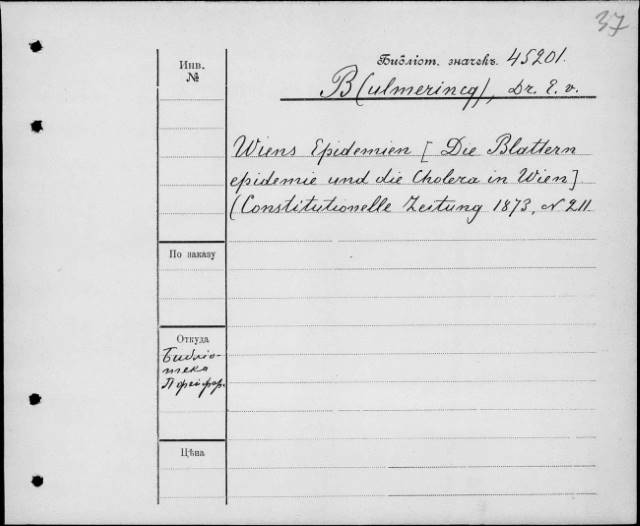 37
Библіот. значекъ. 45201.
Инв.
№
B(ulmerincq), Dr. E. v.
Wiens Epidemien [ Die Blattern
epidemie und die Cholera in Wien]
(Constitutionelle Zeitung 1873, N 211.
По заказу
Откуда
Библіо-
тека
Пфейфер.
Цѣна